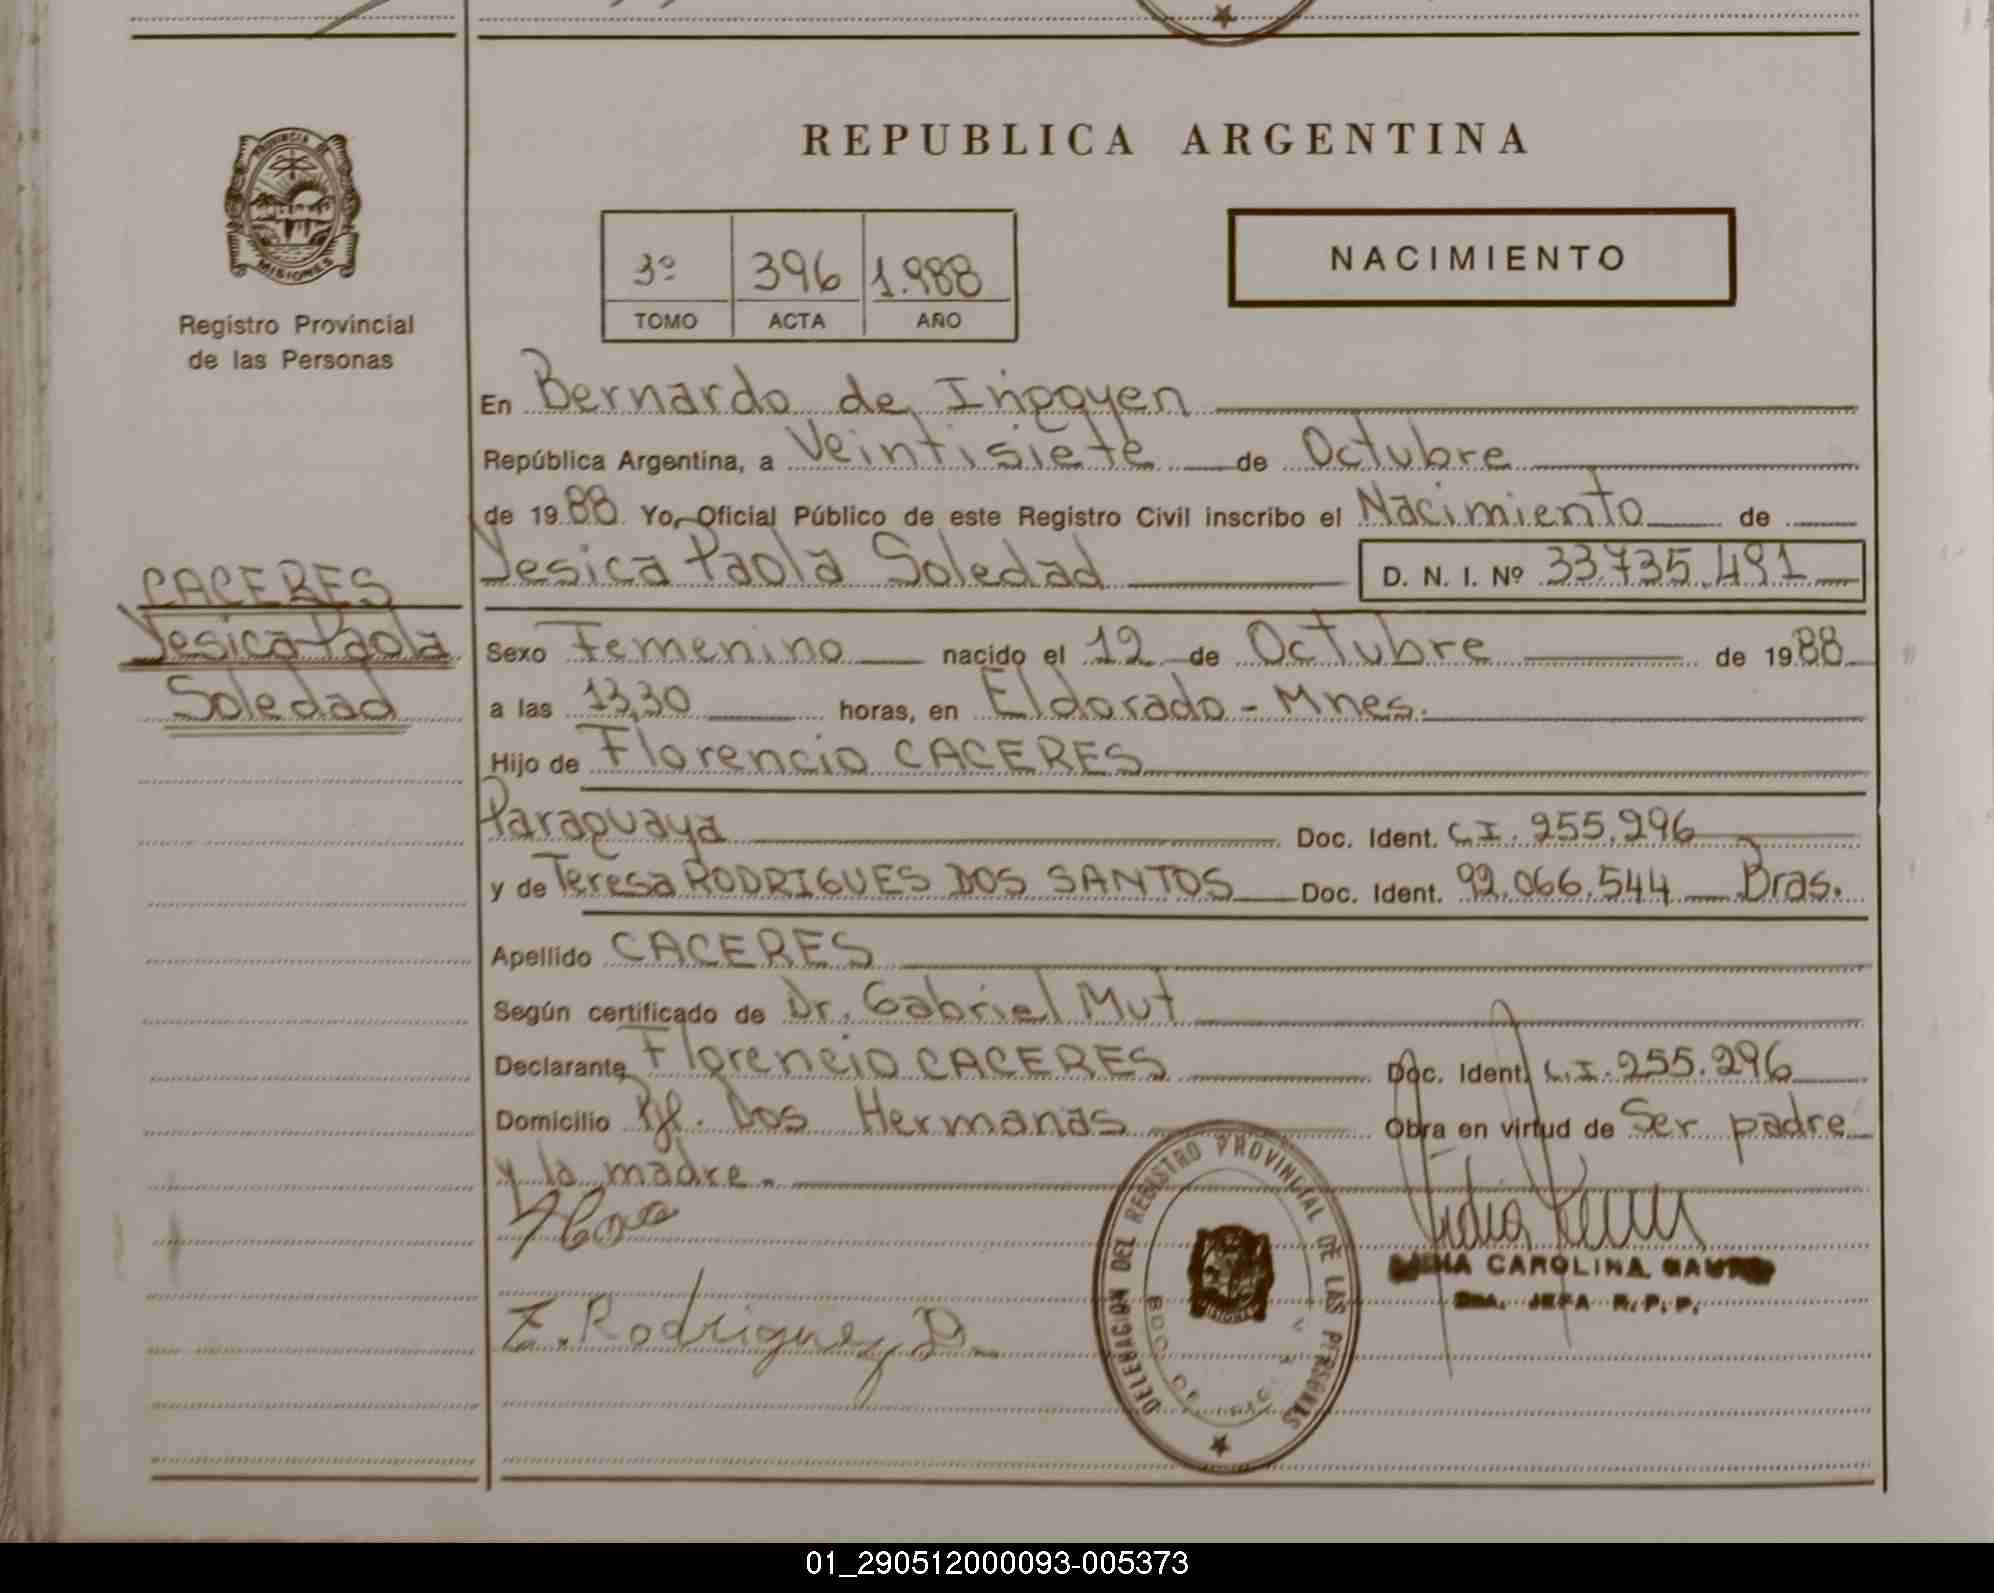 PROVINCIA DE
MISIONES
Registro Provincial
de las Personas
CACERES
Yesica Paola
Soledad
REPUBLICA ARGENTINA
3º 396 1.988
TOMO ACTA AÑO
NACIMIENTO
En Bernardo de Irigoyen
República Argentina, a Veintisiete de Octubre
de 1988 Yo, Oficial Público de este Registro Civil inscribo el Nacimiento de
Yesica Paola Soledad D. N. I. Nº 33.735.491
Sexo Femenino nacido el 12 de Octubre de 1988
a las 13,30 horas, en Eldorado - Mnes.
Hijo de Florencio CACERES
Paraguaya Doc. Ident. C.I. 255.296
y de Teresa RODRIGUES DOS SANTOS Doc. Ident. 92.066.544 Bras.
Apellido CACERES
Según certificado de Dr. Gabriel Mut
Declarante Florencio CACERES Doc. Ident. C.I. 255.296
Domicilio Pje. Dos Hermanas Obra en virtud de Ser padre
y la madre.
DELEGACION DEL REGISTRO PROVINCIAL DE LAS PERSONAS
BDO. DE IRIG.
CAROLINA
JEFA R. P. P.
Z. Rodriguez D.
01_290512000093-005373